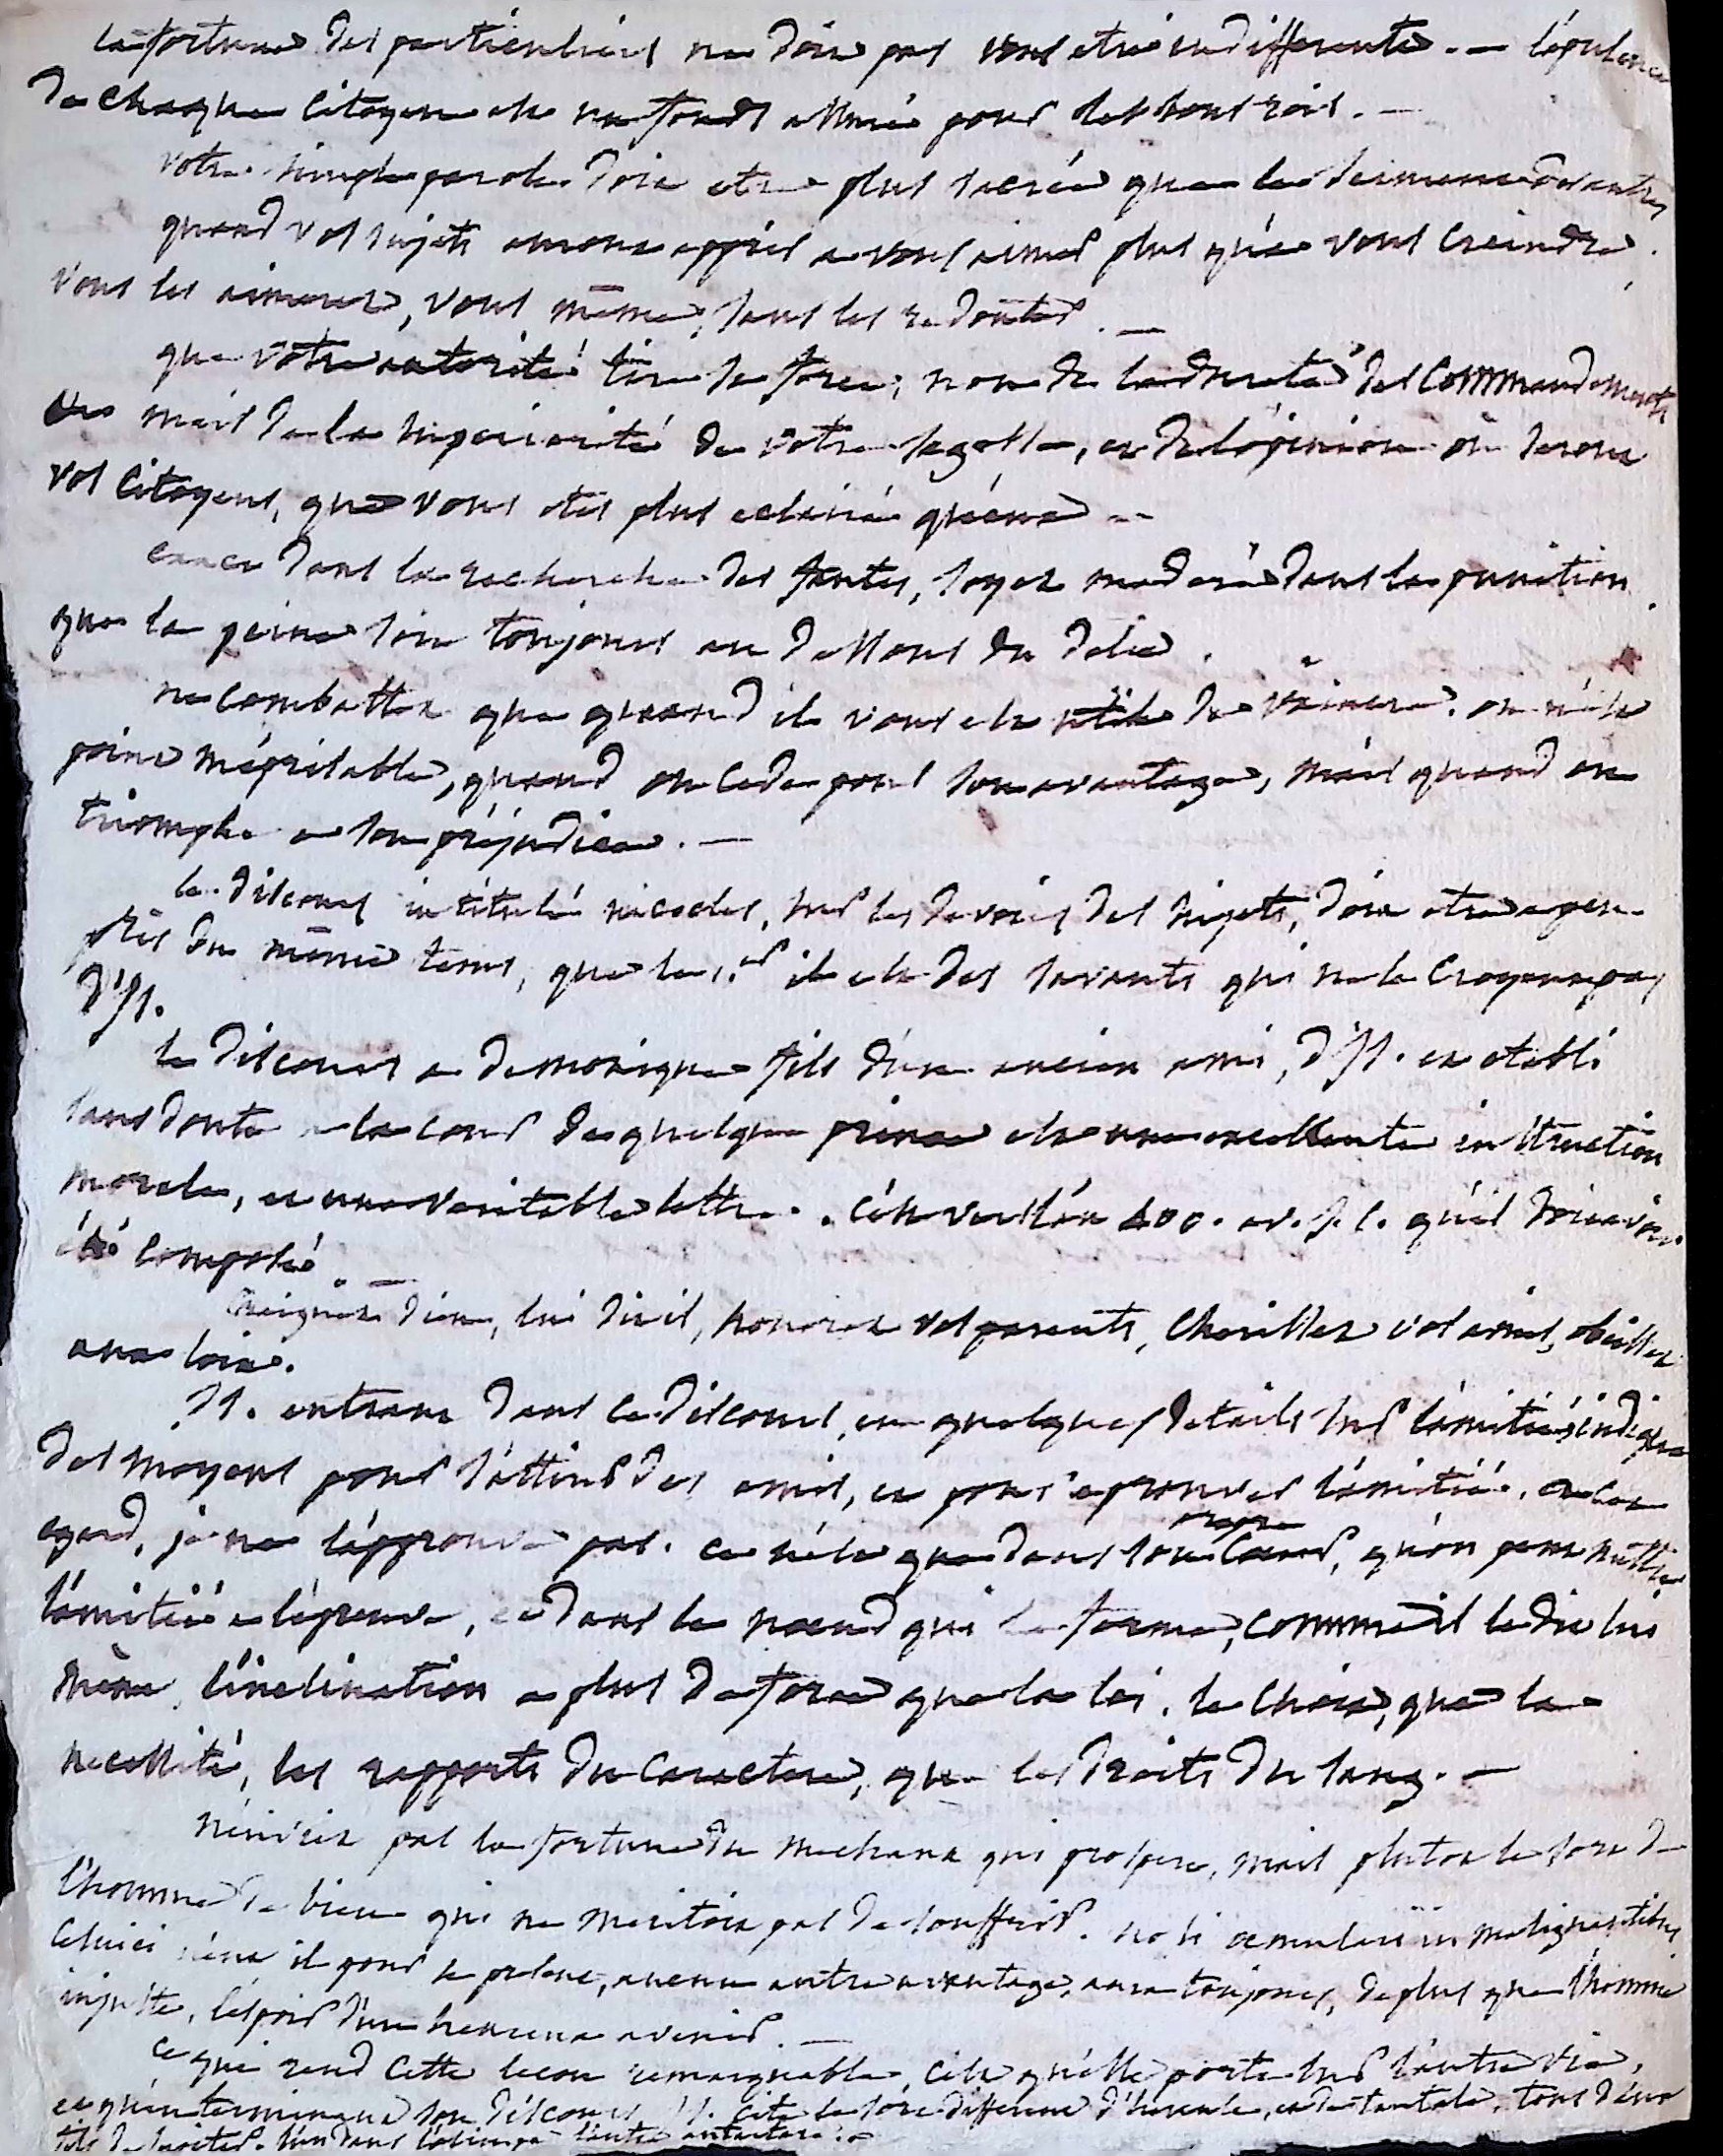 la fortune des particuliers ne doit pas vous etre indifferente. — l'opulence
de chaque citoyen est un fonds assuré pour les bons rois. —
votre simple parole doit etre plus sacrée que les sermens des autres
quand vos sujets auront appris a vous aimer plus qu'a vous craindre,
vous les aimerez, vous même, sans les redouter. —
que votre autorité tire sa force, non de la dureté des commandements
mais de la superiorité de votre sagesse, et de l'opinion où seront
vos citoyens, que vous etes plus eclairé qu'eux —
exact dans la recherche des fautes, soyez moderé dans la punition.
que la peine soit toujours au dessous du delit.
ne combattez que quand il vous est utile de vaincre. on n'est
point méprisable, quand on cede pour son avantage, mais quand on
triomphe a son préjudice. —
le discours intitulé nicocles, sur les devoirs des sujets, doit etre a peu
près du même tems, que le 1.er il est des savants qui ne le croyent pas
d'Is.
le discours a demonique fils d'un ancien ami, d'Is. et etabli
sans doute a la cour de quelque prince est une excellente instruction
morale, et une veritable lettre. c'est vers l'an 400. av. J. C. qu'il doit avoir
été composé. —
Craignez dieu, lui dit-il, honorez vos parents, cherissez vos amis, obeissez
aux loix.
Is. entrant dans ce discours, en quelques details sur l'amitié, indique
des moyens pour s'attirer des amis, et pour eprouver l'amitié. a cet
egard, je ne l'approuve pas. ce n'est que dans son propre coeur, qu'on peut mettre
l'amitié a l'epreuve, et dans le noeud qui la forme, comme il le dit lui
même, l'inclination a plus de force que la loi, le choix, que la
necessité, les rapports du caractere, que les droits du sang. —
n'enviez pas la fortune du mechant qui prospere, mais plutot le sort de
l'homme de bien qui ne meritoit pas de souffrir. noli aemulari in malignantibus.
Celui ci n'eut il pour le present, aucun autre avantage, aura toujours, de plus que l'homme
injuste, l'espoir d'un heureux avenir. —
ce qui rend cette lecon remarquable, c'est qu'elle porte sur l'autre vie,
et qu'en terminant son discours Is. cite le sort different d'hercule, et de tantale, tous deux
fils de Jupiter. l'un dans l'olimpe l'autre au tartare. —